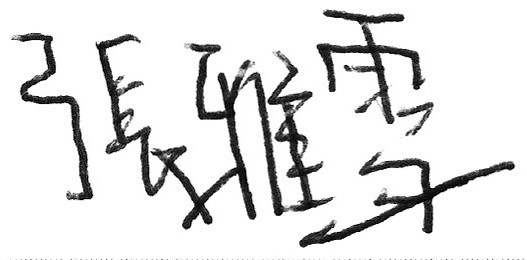 張雅雯